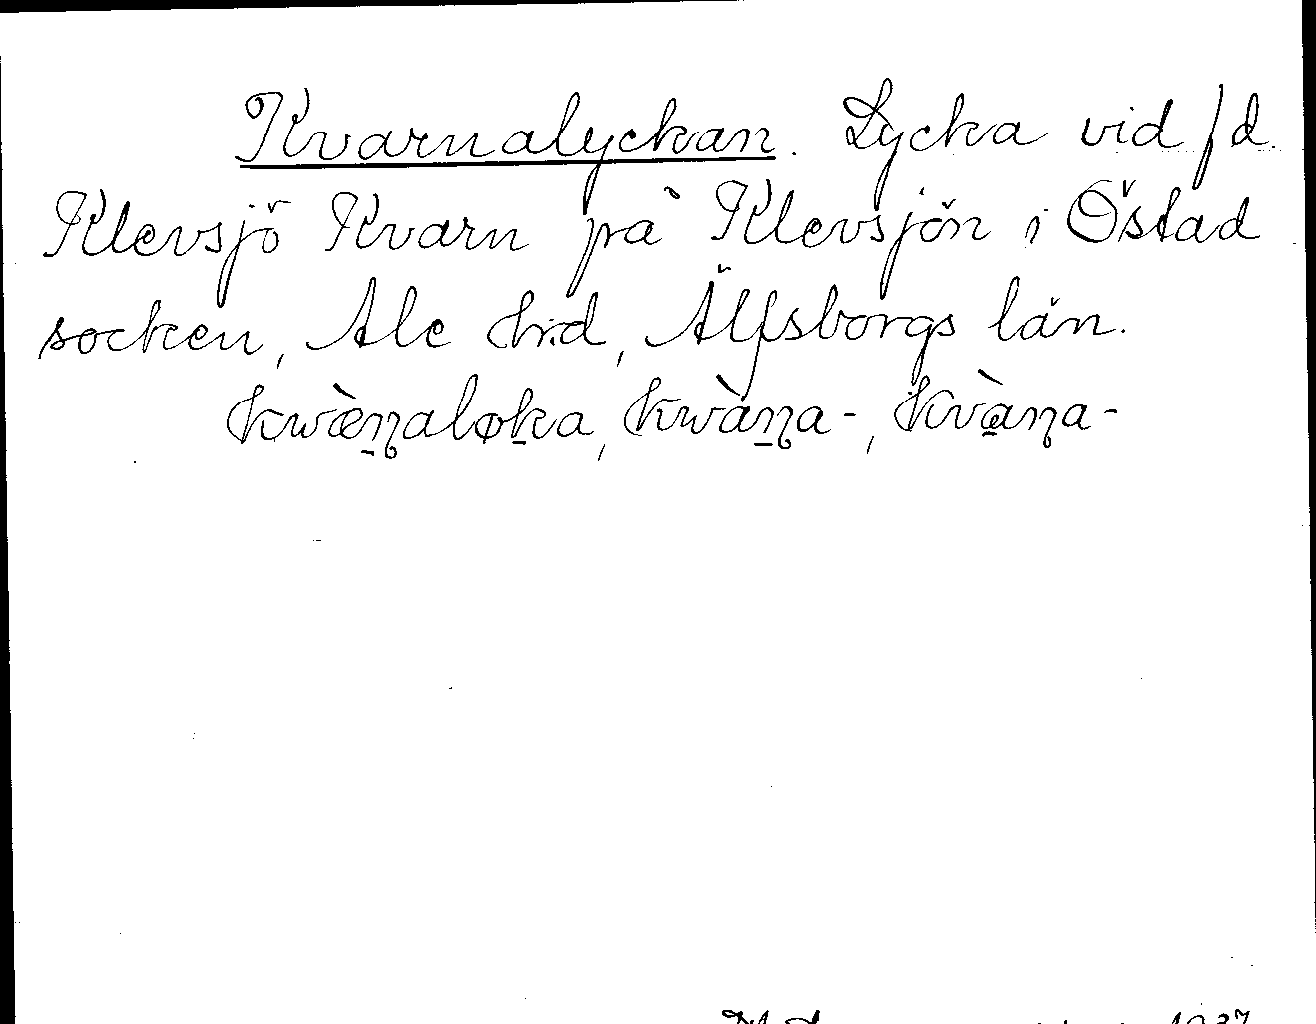 Kvarnalyckan. Lycka vid f d.
Klevsjö Kvarn på Klevsjön i Östad
socken, Ale hrd, Älfsborgs län.
kwæ̀n̠aløk̠a, kwàn̠a-, kvàna-
1937